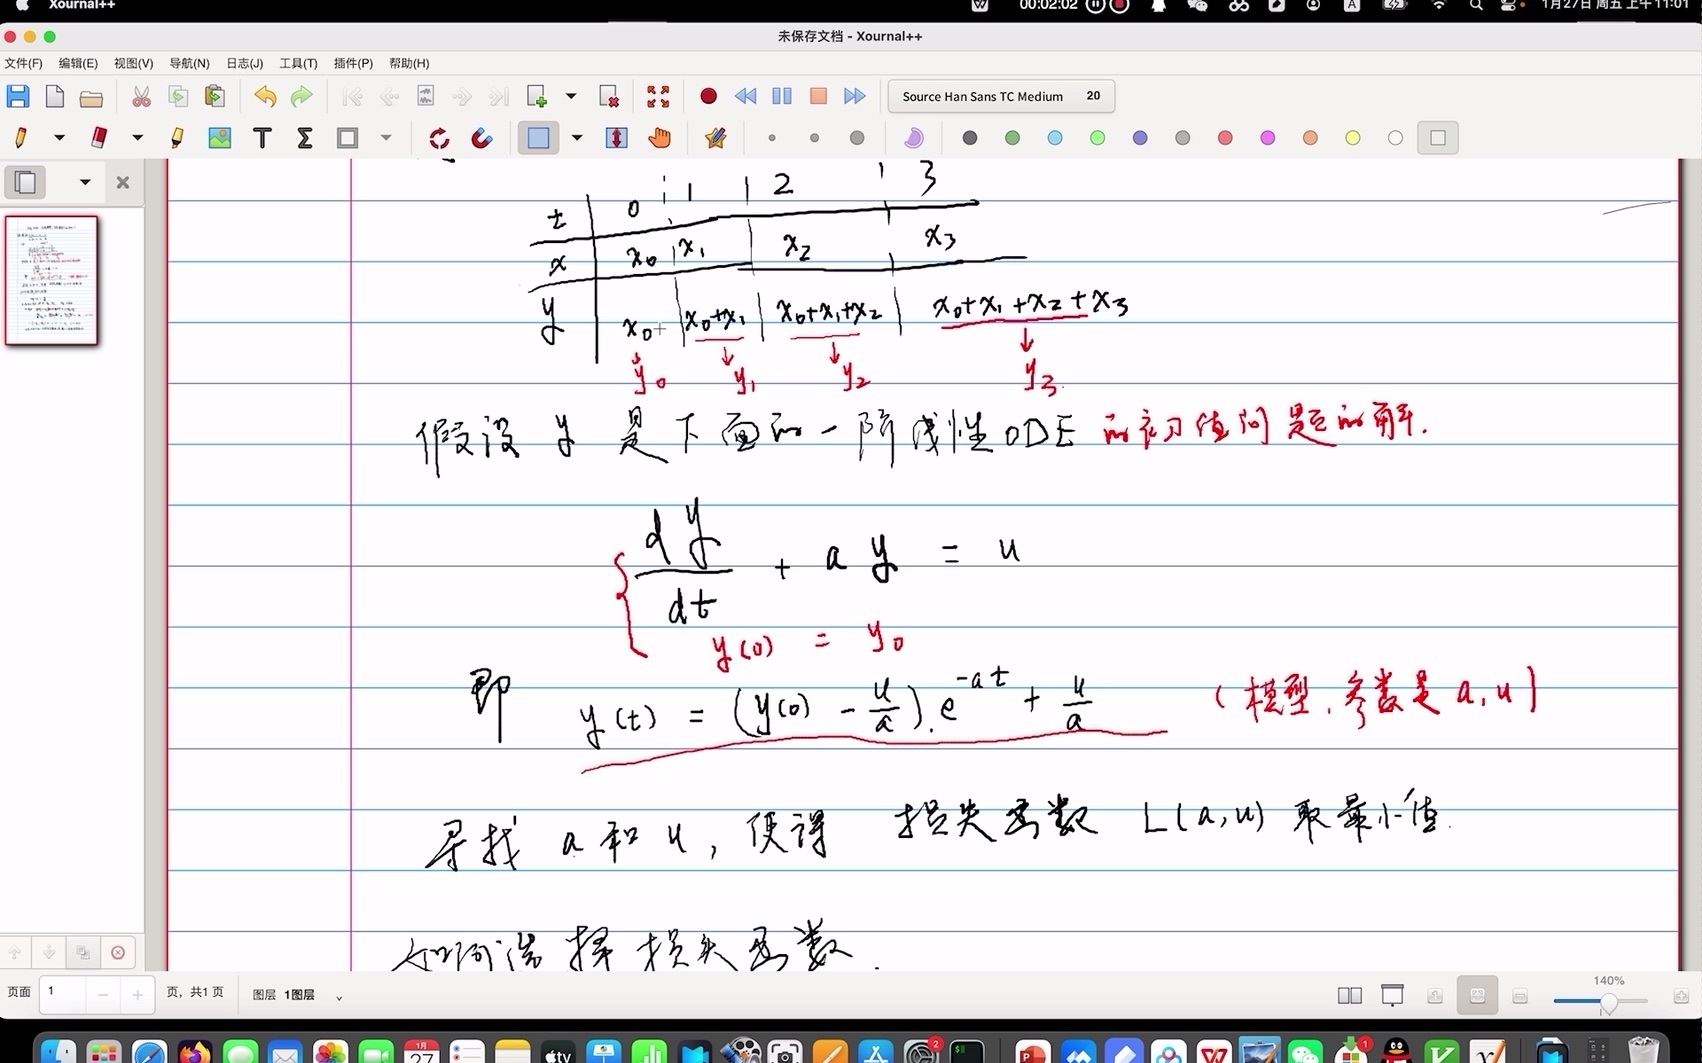 Xournal++
00:02:02
1月27日 周五 上午11:01
未保存文档 - Xournal++
文件(F) 编辑(E) 视图(V) 导航(N) 日志(J) 工具(T) 插件(P) 帮助(H)
Source Han Sans TC Medium 20
t 0 1 2 3
x x₀ x₁ x₂ x₃
y x₀+ x₀+x₁ x₀+x₁+x₂ x₀+x₁+x₂+x₃
y₀ y₁ y₂ y₃
假设 y 是下面的一阶线性ODE 的初值问题的解.
dy/dt + a y = u
y(0) = y₀
即 y(t) = (y(0) - u/a). e^{-at} + u/a (模型,参数是 a,u)
寻找 a 和 u, 使得 损失函数 L(a,u) 取最小值.
如何选择损失函数.
页面 1 页,共1 页 图层 1图层
140%